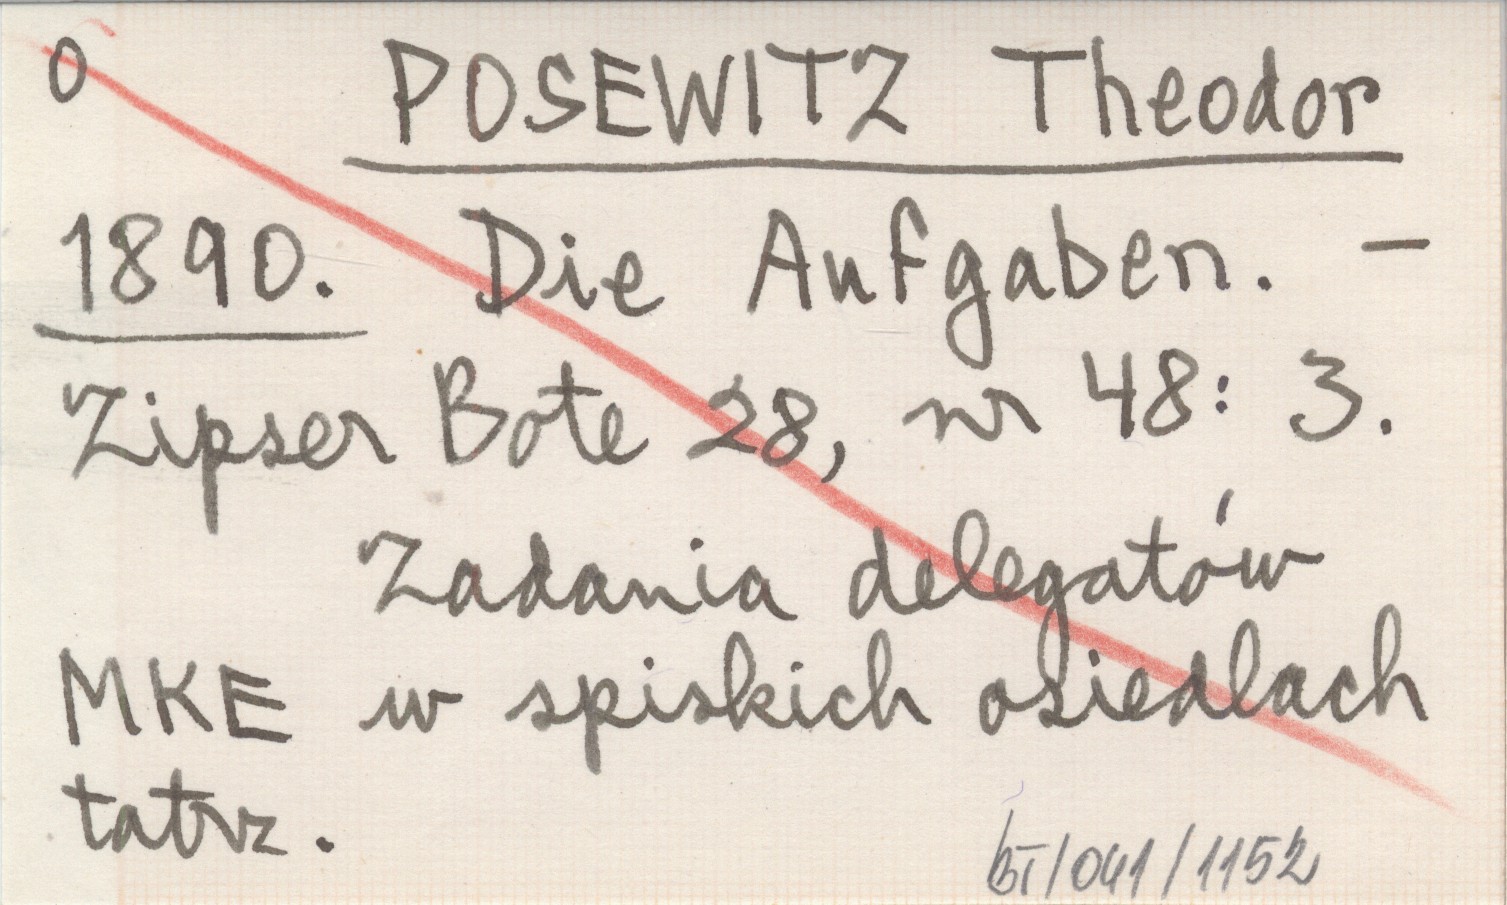 0 POSEWITZ Theodor
1890. Die Aufgaben. –
Zipser Bote 28, nr 48: 3.
Zadania delegatów
MKE w spiskich osiedlach
tatrz.
BT/041/1152